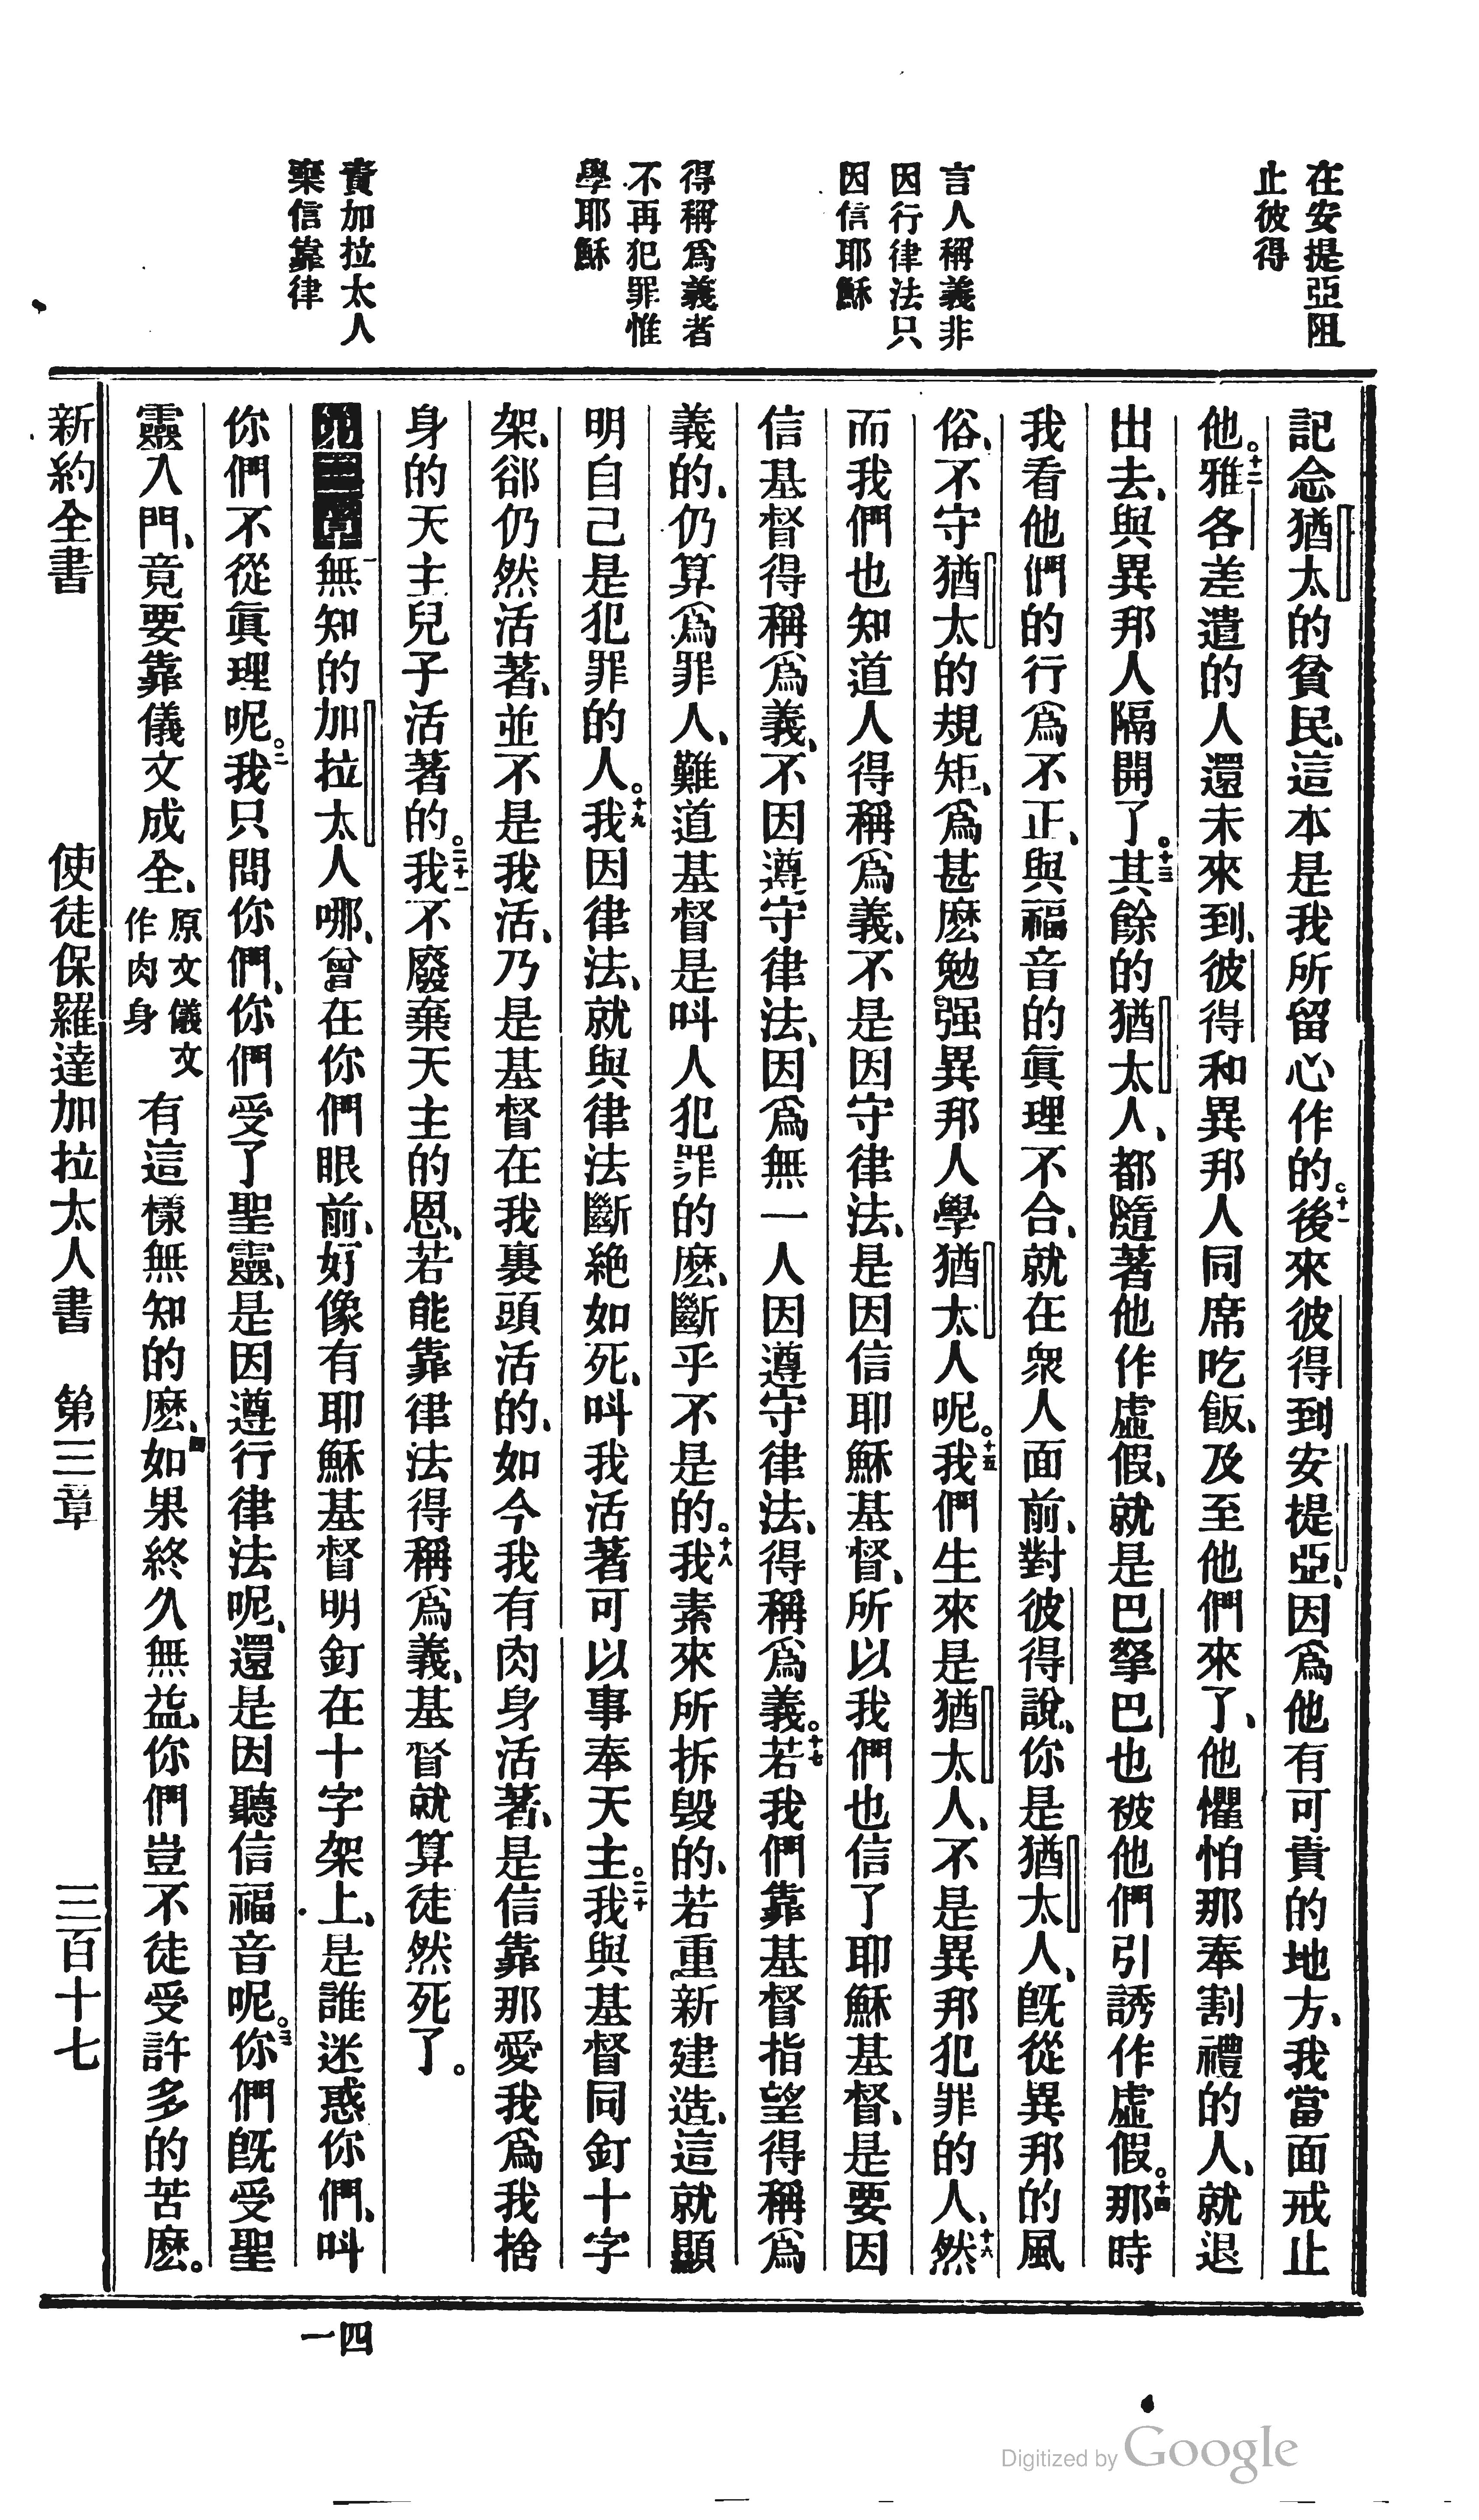 在安提亞阻
止彼得
言人稱義非
因行律法只
因信耶穌
得稱爲義者
不再犯罪惟
學耶穌
責加拉太人
棄信靠律
記念猶太的貧民、這本是我所留心作的。十一後來彼得到安提亞、因爲他有可責的地方、我當面戒止
他。十二雅各差遣的人還未來到、彼得和異邦人同席吃飯、及至他們來了、他懼怕那奉割禮的人、就退
出去、與異邦人隔開了。十三其餘的猶太人、都隨著他作虛假、就是巴拏巴也被他們引誘作虛假。十四那時
我看他們的行爲不正、與福音的眞理不合、就在衆人面前、對彼得說、你是猶太人、旣從異邦的風
俗、不守猶太的規矩、爲甚麽勉强異邦人學猶太人呢。十五我們生來是猶太人、不是異邦犯罪的人、十六然
而我們也知道人得稱爲義、不是因守律法、是因信耶穌基督、所以我們也信了耶穌基督、是要因
信基督得稱爲義、不因遵守律法、因爲無一人因遵守律法、得稱爲義。十七若我們靠基督指望得稱爲
義的、仍算爲罪人、難道基督是呌人犯罪的麽、斷乎不是的。十八我素來所拆毀的、若重新建造、這就顯
明自己是犯罪的人。十九我因律法、就與律法斷絶如死、呌我活著可以事奉天主。二十我與基督同釘十字
架、郤仍然活著、並不是我活、乃是基督在我裏頭活的、如今我有肉身活著、是信靠那愛我爲我捨
身的天主兒子活著的。二十一我不廢棄天主的恩、若能靠律法得稱爲義、基督就算徒然死了。
第三章一無知的加拉太人哪、曾在你們眼前、好像有耶穌基督明釘在十字架上、是誰迷惑你們、呌
你們不從眞理呢。二我只問你們、你們受了聖靈、是因遵行律法呢、還是因聽信福音呢。三你們旣受聖
靈入門、竟要靠儀文成全、原文儀文作肉身有這樣無知的麽、四如果終久無益、你們豈不徒受許多的苦麽。
新約全書 使徒保羅達加拉太人書 第三章 三百十七
四一
Digitized by Google